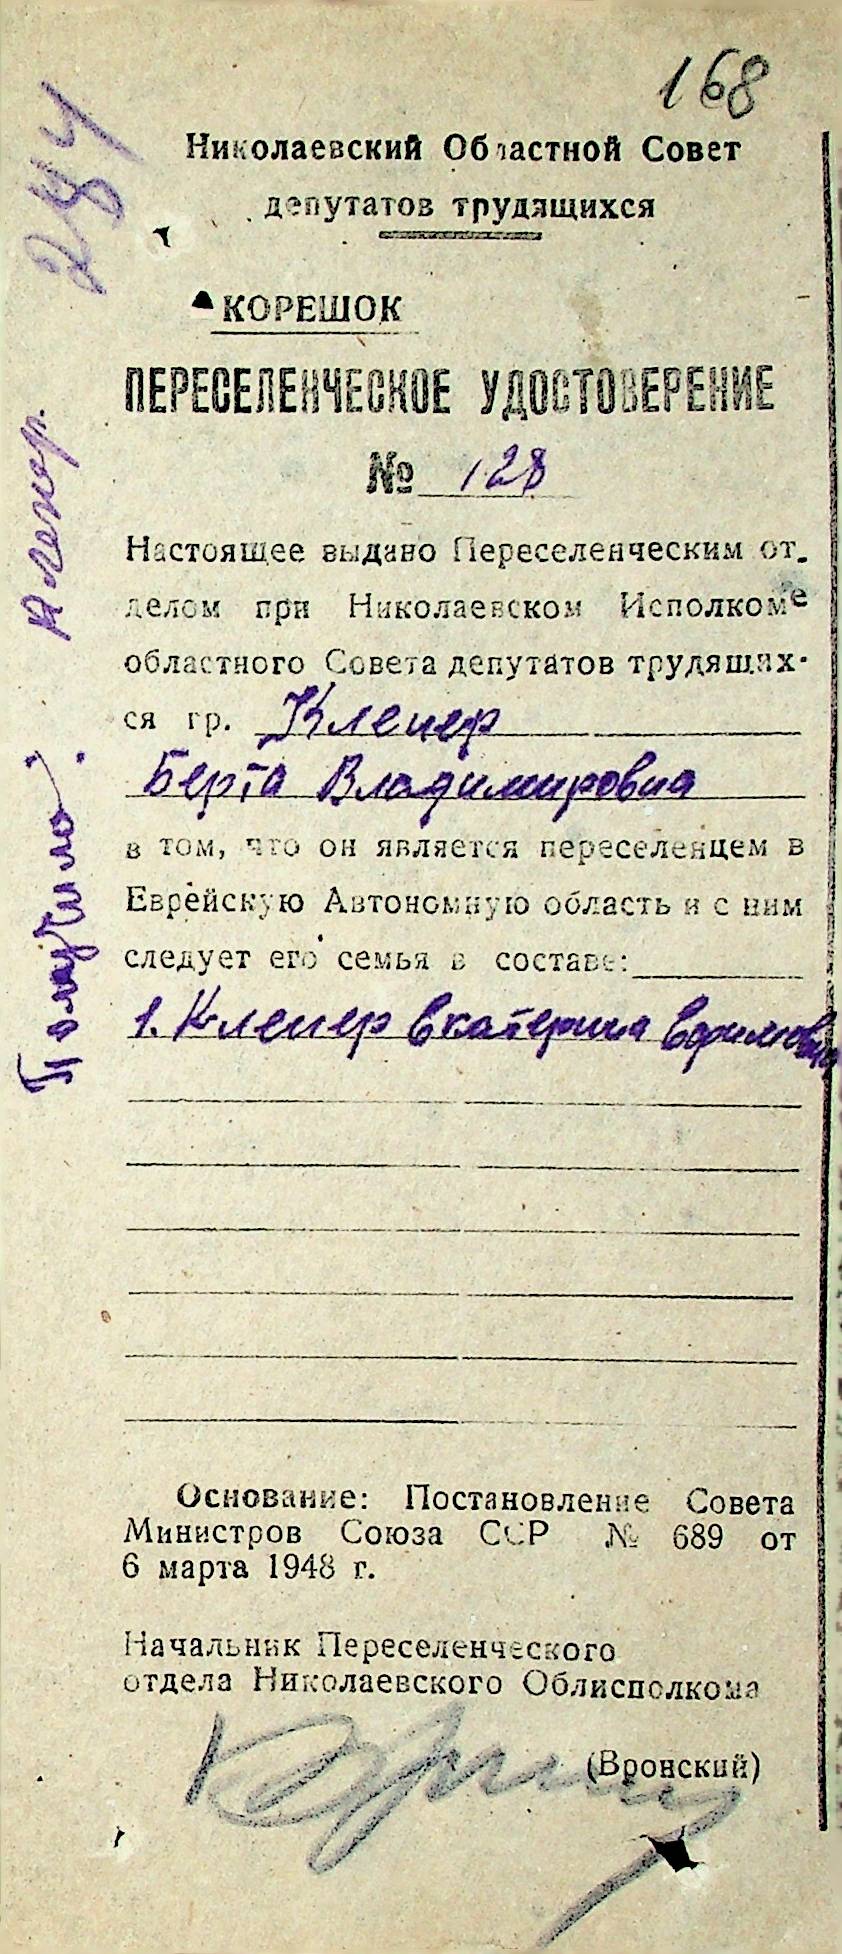 168
284
Николаевский Областной Совет
депутатов трудящихся
КОРЕШОК
ПЕРЕСЕЛЕНЧЕСКОЕ УДОСТОВЕРЕНИЕ
№ 128
Настоящее выдано Переселенческим от-
делом при Николаевском Исполкоме
областного Совета депутатов трудящих-
ся гр. Клепер
Берта Владимировна
в том, что он является переселенцем в
Еврейскую Автономную область и с ним
следует его семья в составе:
1. Клепер Екатерина Ефимовна
Основание: Постановление Совета
Министров Союза ССР № 689 от
6 марта 1948 г.
Начальник Переселенческого
отдела Николаевского Облисполкома
(Вронский)
Получила: Клепер.